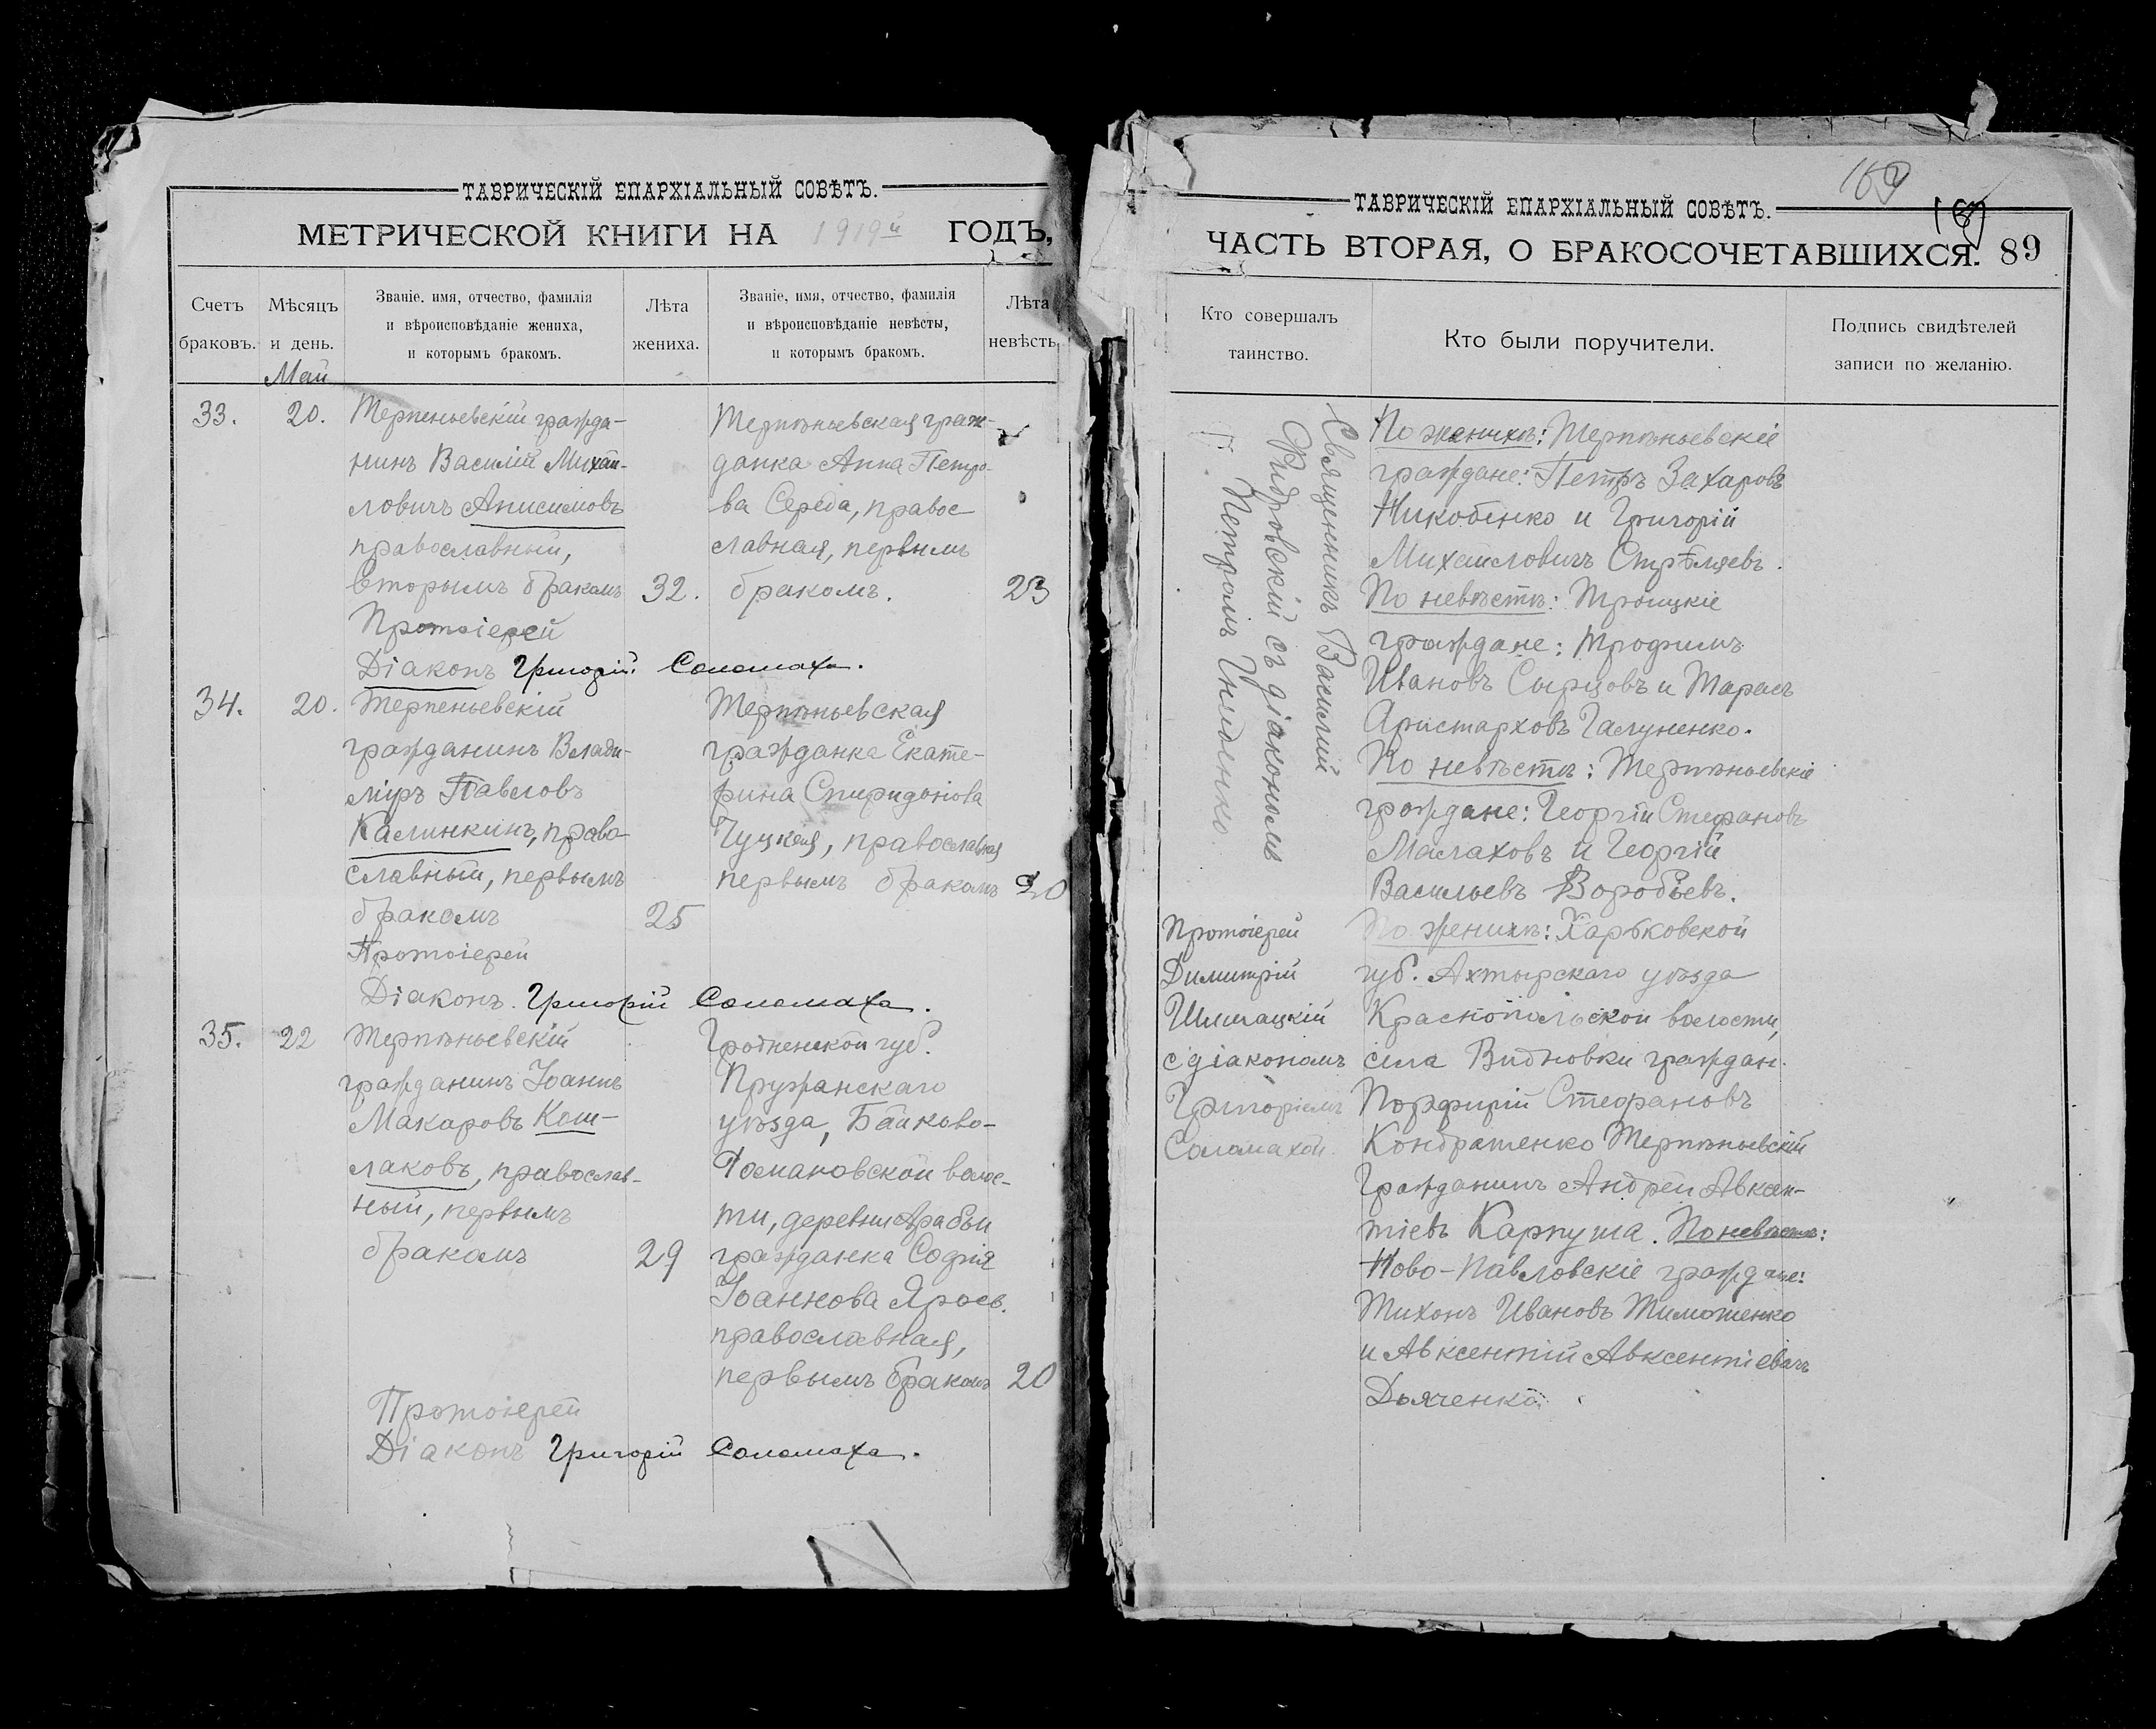 ТАВРИЧЕСКІЙ ЕПАРХІАЛЬНЫЙ СОВѢТЪ.
МЕТРИЧЕСКОЙ КНИГИ НА 1919й ГОДЪ,
Счетъ браковъ.
Мѣсяцъ и день.
Званіе, имя, отчество, фамилія
и вѣроисповѣданіе жениха,
и которымъ бракомъ.
Лѣта жениха.
Званіе, имя, отчество, фамилія
и вѣроисповѣданіе невѣсты,
и которымъ бракомъ.
Лѣта невѣсты
Май
33. 20.
Терпеньевскій гражда-
нинъ Василій Михай-
ловичъ Анисимовъ
православный,
вторымъ бракомъ 32.
Терпѣньевская граж-
данка Анна Петро-
ва Середа, правос
лавная, первымъ
бракомъ. 23
Протоіерей
Діаконъ Григорій Соломаха.
34. 20.
Терпеньевскій
гражданинъ Влади-
міръ Павловъ
Калинкинъ, право-
славный, первымъ
бракомъ 25
Терпѣньевская
гражданка Екате-
рина Спиридонова
Чуцкая, православная
первымъ бракомъ 20
Протоіерей
Діаконъ. Григорій Соломаха.
35. 22
Терпѣньевскій
гражданинъ Іоаннъ
Макаровъ Кош-
лаковъ, православ-
ный, первымъ
бракомъ 29
Гродненской губ.
Пружанскаго
уѣзда, Байково-
Романовской волос-
ти, деревни
гражданка Софія
Іоаннова
православная,
первымъ бракомъ 20
Протоіерей
Діаконъ Григорій Соломаха.
169
ТАВРИЧЕСКІЙ ЕПАРХІАЛЬНЫЙ СОВѢТЪ.
ЧАСТЬ ВТОРАЯ, О БРАКОСОЧЕТАВШИХСЯ. 89
Кто совершалъ
таинство.
Кто были поручители.
Подпись свидѣтелей
записи по желанію.
Священникъ Василій
съ діакономъ
Петромъ
По женихѣ: Терпѣньевскіе
граждане: Петръ Захаровъ
Никобенко и Григорій
Михайловичъ Стрѣляевъ.
По невѣстѣ: Троицкіе
граждане: Трофимъ
Ивановъ Сырцовъ и Тарасъ
Аристарховъ Галуненко.
По невѣстѣ: Терпѣньевскіе
граждане: Георгій Стефановъ
Малаховъ и Георгій
Васильевъ Воробьевъ.
Протоіерей
Димитрій
с діакономъ
Григоріемъ
Соломахой.
По женихѣ: Харьковской
губ. Ахтырскаго уѣзда
Краснопольской волости,
села Видновки граждан.
Порфирій Стефановъ
Кондратенко Терпѣньевскій
Гражданинъ Андрей Авксен-
тіевъ Карпуша. По невѣстѣ:
Ново-Павловскіе граждане:
Тихонъ Ивановъ Тимошенко
и Авксентій Авксентіевичъ
Дьяченко.